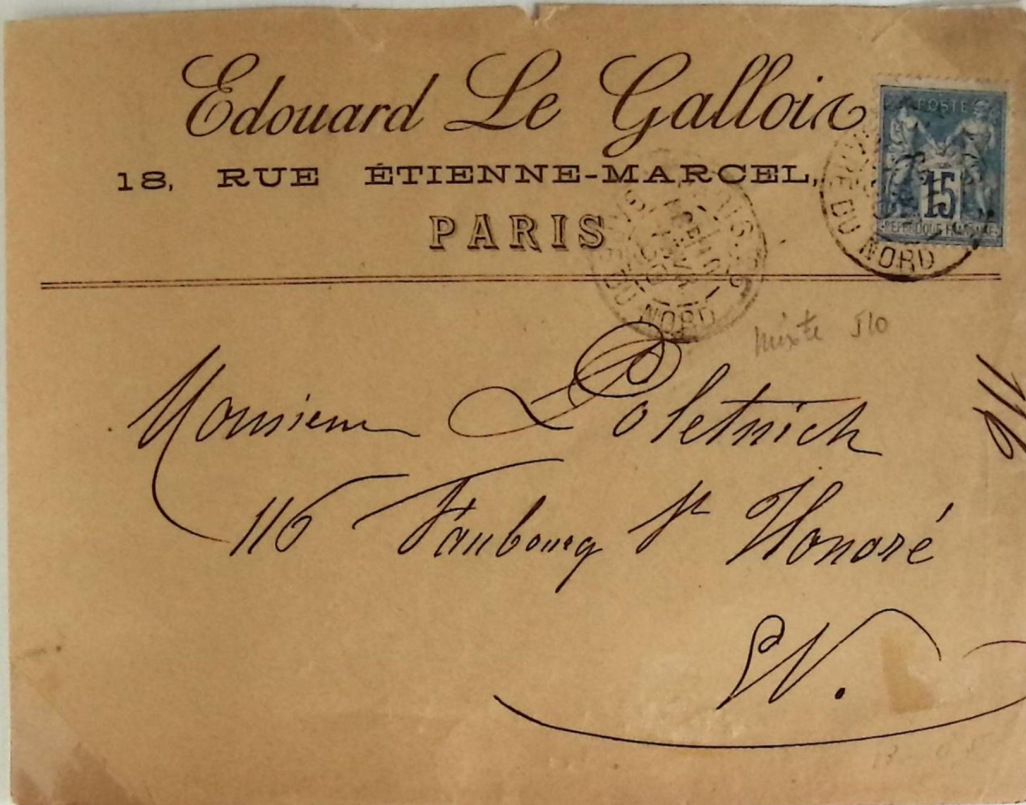 Edouard Le Gallois
18, RUE ÉTIENNE-MARCEL,
PARIS
POSTE
15
REPUBLIQUE FRANCAISE
DU NORD
DU NORD
mixte 510
Monsieur Poletnich
116 Faubourg St Honoré